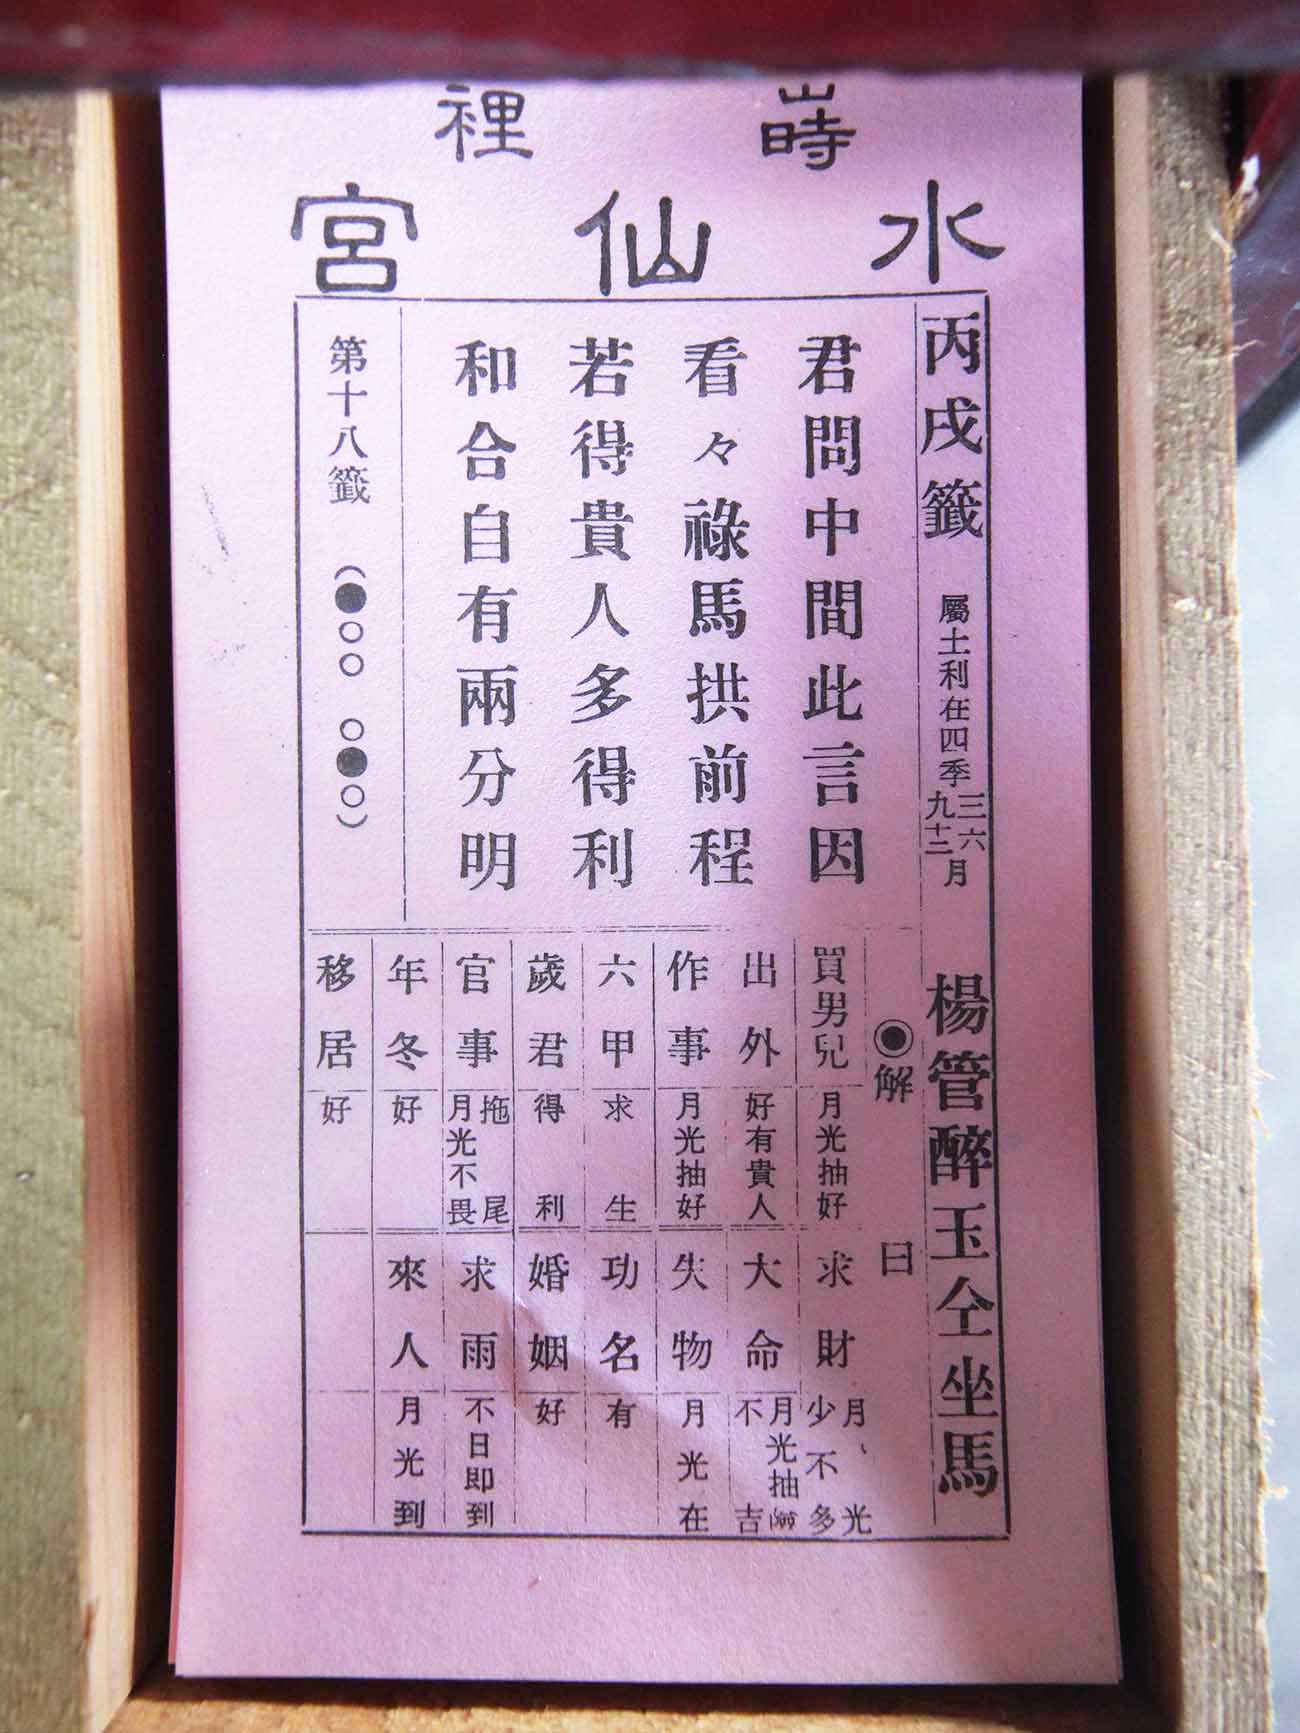 嵵裡
水仙宮
丙戌籤 屬土利在四季三六九十二月 楊管醉玉仝坐馬
君問中間此言因
看々祿馬拱前程
若得貴人多得利
和合自有兩分明
第十八籤 (●○○ ○●○)
◉解曰
買男兒 月光抽好
求財 月、光少不多
出外 好有貴人
大命 月光抽不吉
作事 月光抽好
失物 月光在
六甲 求生
功名 有
歲君 得利
婚姻 好
官事 拖尾月光不畏
求雨 不日即到
年冬 好
來人 月光到
移居 好